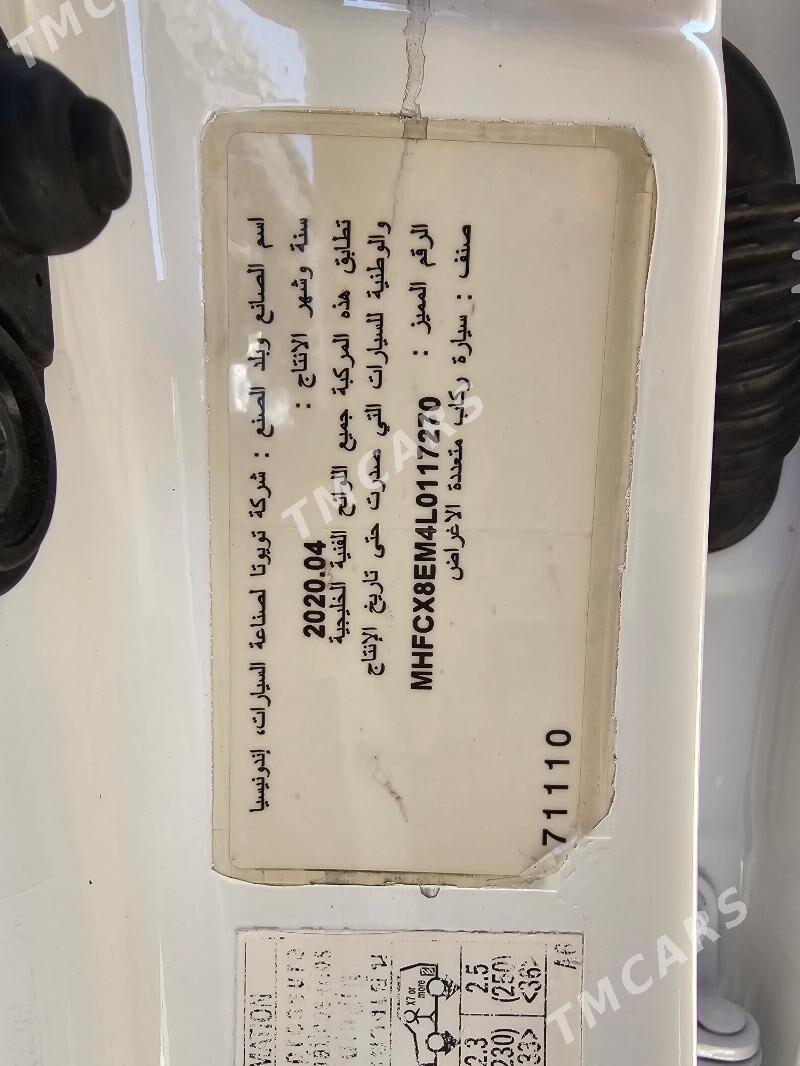 اسم الصانع وبلد الصنع : شركة تويوتا لصناعة السيارات، إندونيسيا
سنة وشهر الانتاج : 2020.04
تطابق هذه المركبة جميع اللوائح الفنية الخليجية
والوطنية للسيارات التي صدرت حتى تاريخ الإنتاج
الرقم المميز : MHFCX8EM4L0117270
صنف : سيارة ركاب متعددة الاغراض
71110
MATION
X7 or
more
2.3
2.5
230)
(250)
33>
<36>
TMCARS
TMCARS
TMCARS